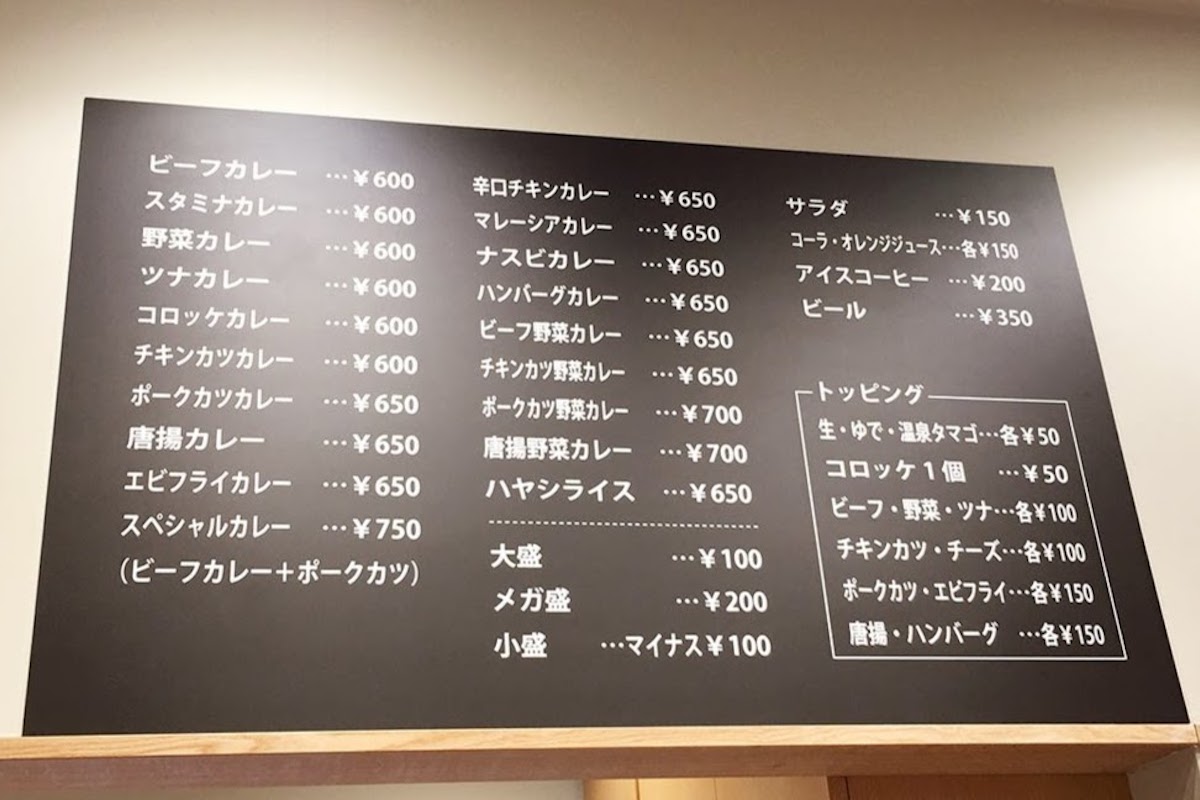 ビーフカレー …¥600
スタミナカレー …¥600
野菜カレー …¥600
ツナカレー …¥600
コロッケカレー …¥600
チキンカツカレー …¥600
ポークカツカレー …¥650
唐揚カレー …¥650
エビフライカレー …¥650
スペシャルカレー …¥750
(ビーフカレー＋ポークカツ)
辛口チキンカレー …¥650
マレーシアカレー …¥650
ナスビカレー …¥650
ハンバーグカレー …¥650
ビーフ野菜カレー …¥650
チキンカツ野菜カレー …¥650
ポークカツ野菜カレー …¥700
唐揚野菜カレー …¥700
ハヤシライス …¥650
大盛 …¥100
メガ盛 …¥200
小盛 …マイナス¥100
サラダ …¥150
コーラ・オレンジジュース…各¥150
アイスコーヒー …¥200
ビール …¥350
トッピング
生・ゆで・温泉タマゴ…各¥50
コロッケ1個 …¥50
ビーフ・野菜・ツナ…各¥100
チキンカツ・チーズ…各¥100
ポークカツ・エビフライ…各¥150
唐揚・ハンバーグ …各¥150